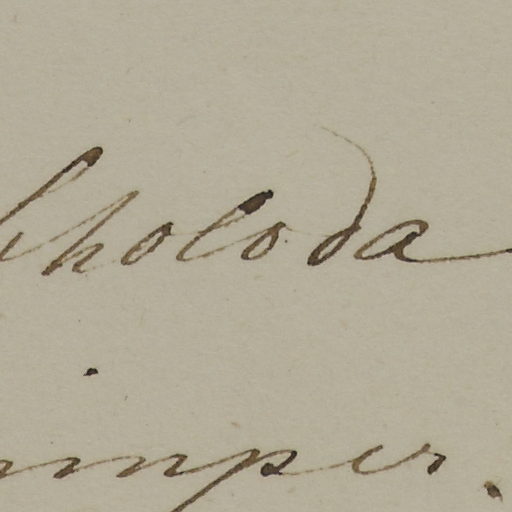 choloda
imper.